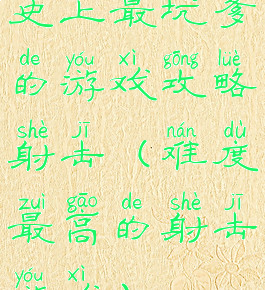 史上最坑爹
de yóu xì gōng lüè
的游戏攻略
shè jī nán dù
射击（难度
zuì gāo de shè jī
最高的射击
yóu xì
游戏）